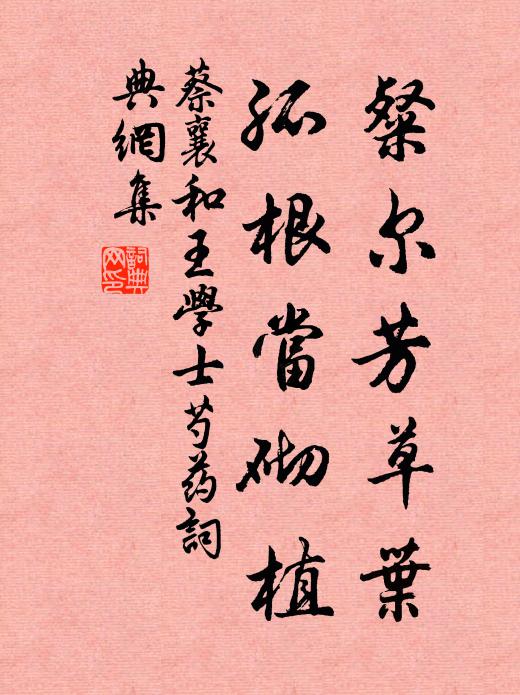 粲尔芳草葉
孤根當砌植
蔡襄和王學士芍药詞
典網集
詞典
网印